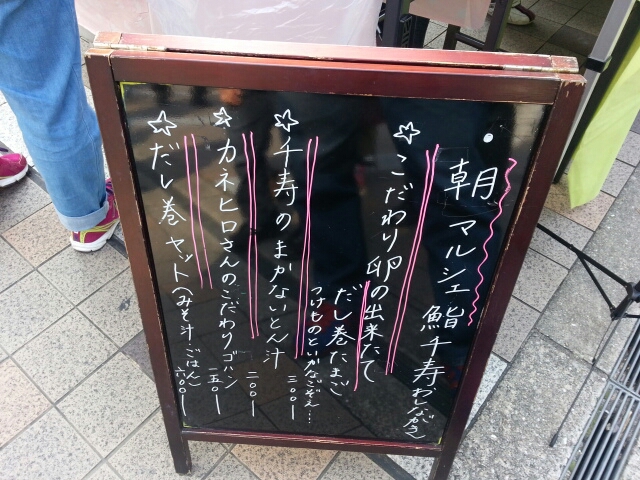 朝マルシェ 鮨千寿 おしながき
☆こだわり卵の出来たて
だし巻たまご
つけものといかなごぞえ… 三〇〇ー
☆千寿のまかないとん汁 二〇〇ー
☆カネヒロさんのこだわりゴハン 一五〇ー
☆だし巻セット(みそ汁・ごはん) 六〇〇ー